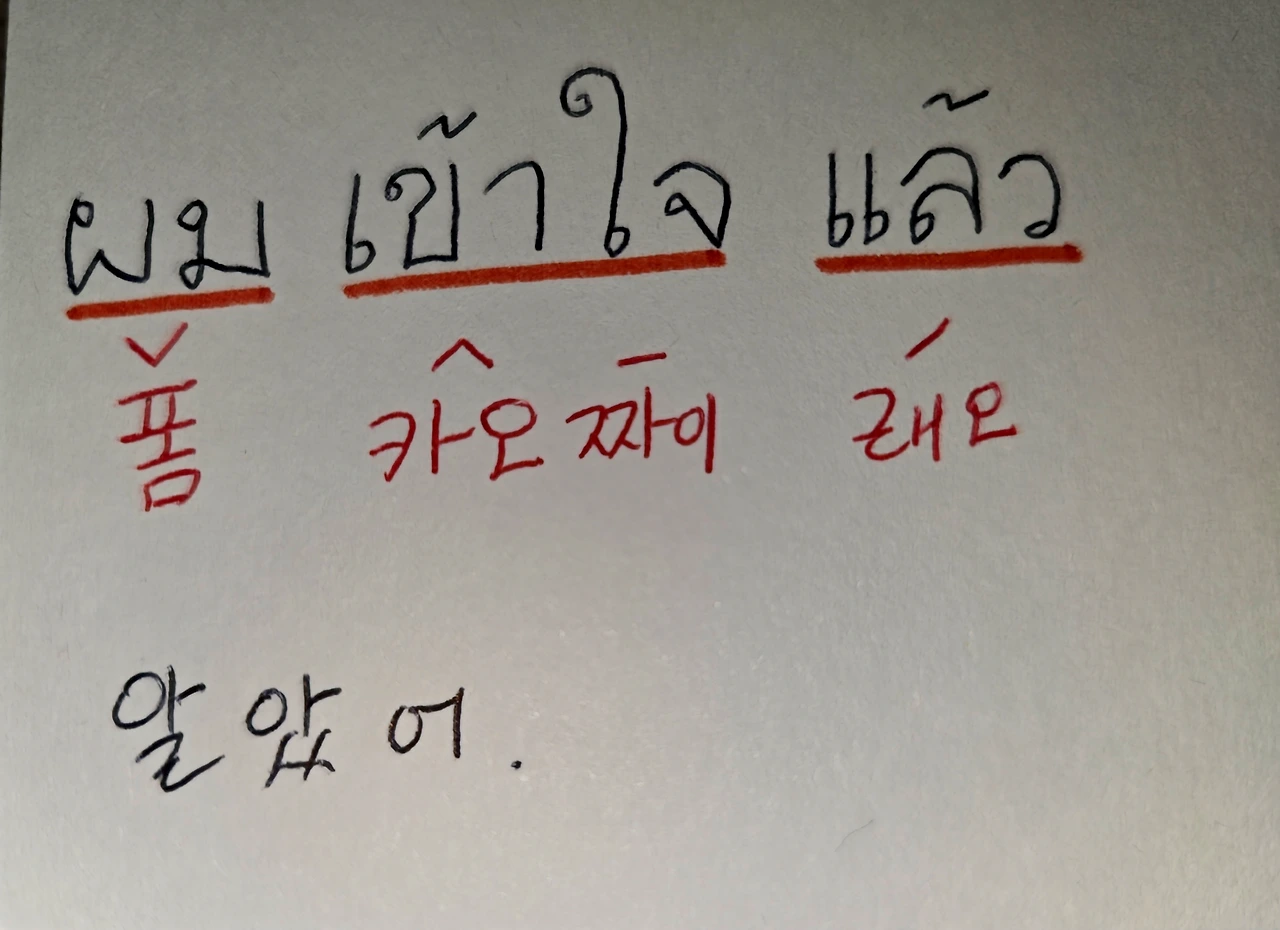 ผม เข้าใจ แล้ว
폼 카오 짜이 래오
알았어.